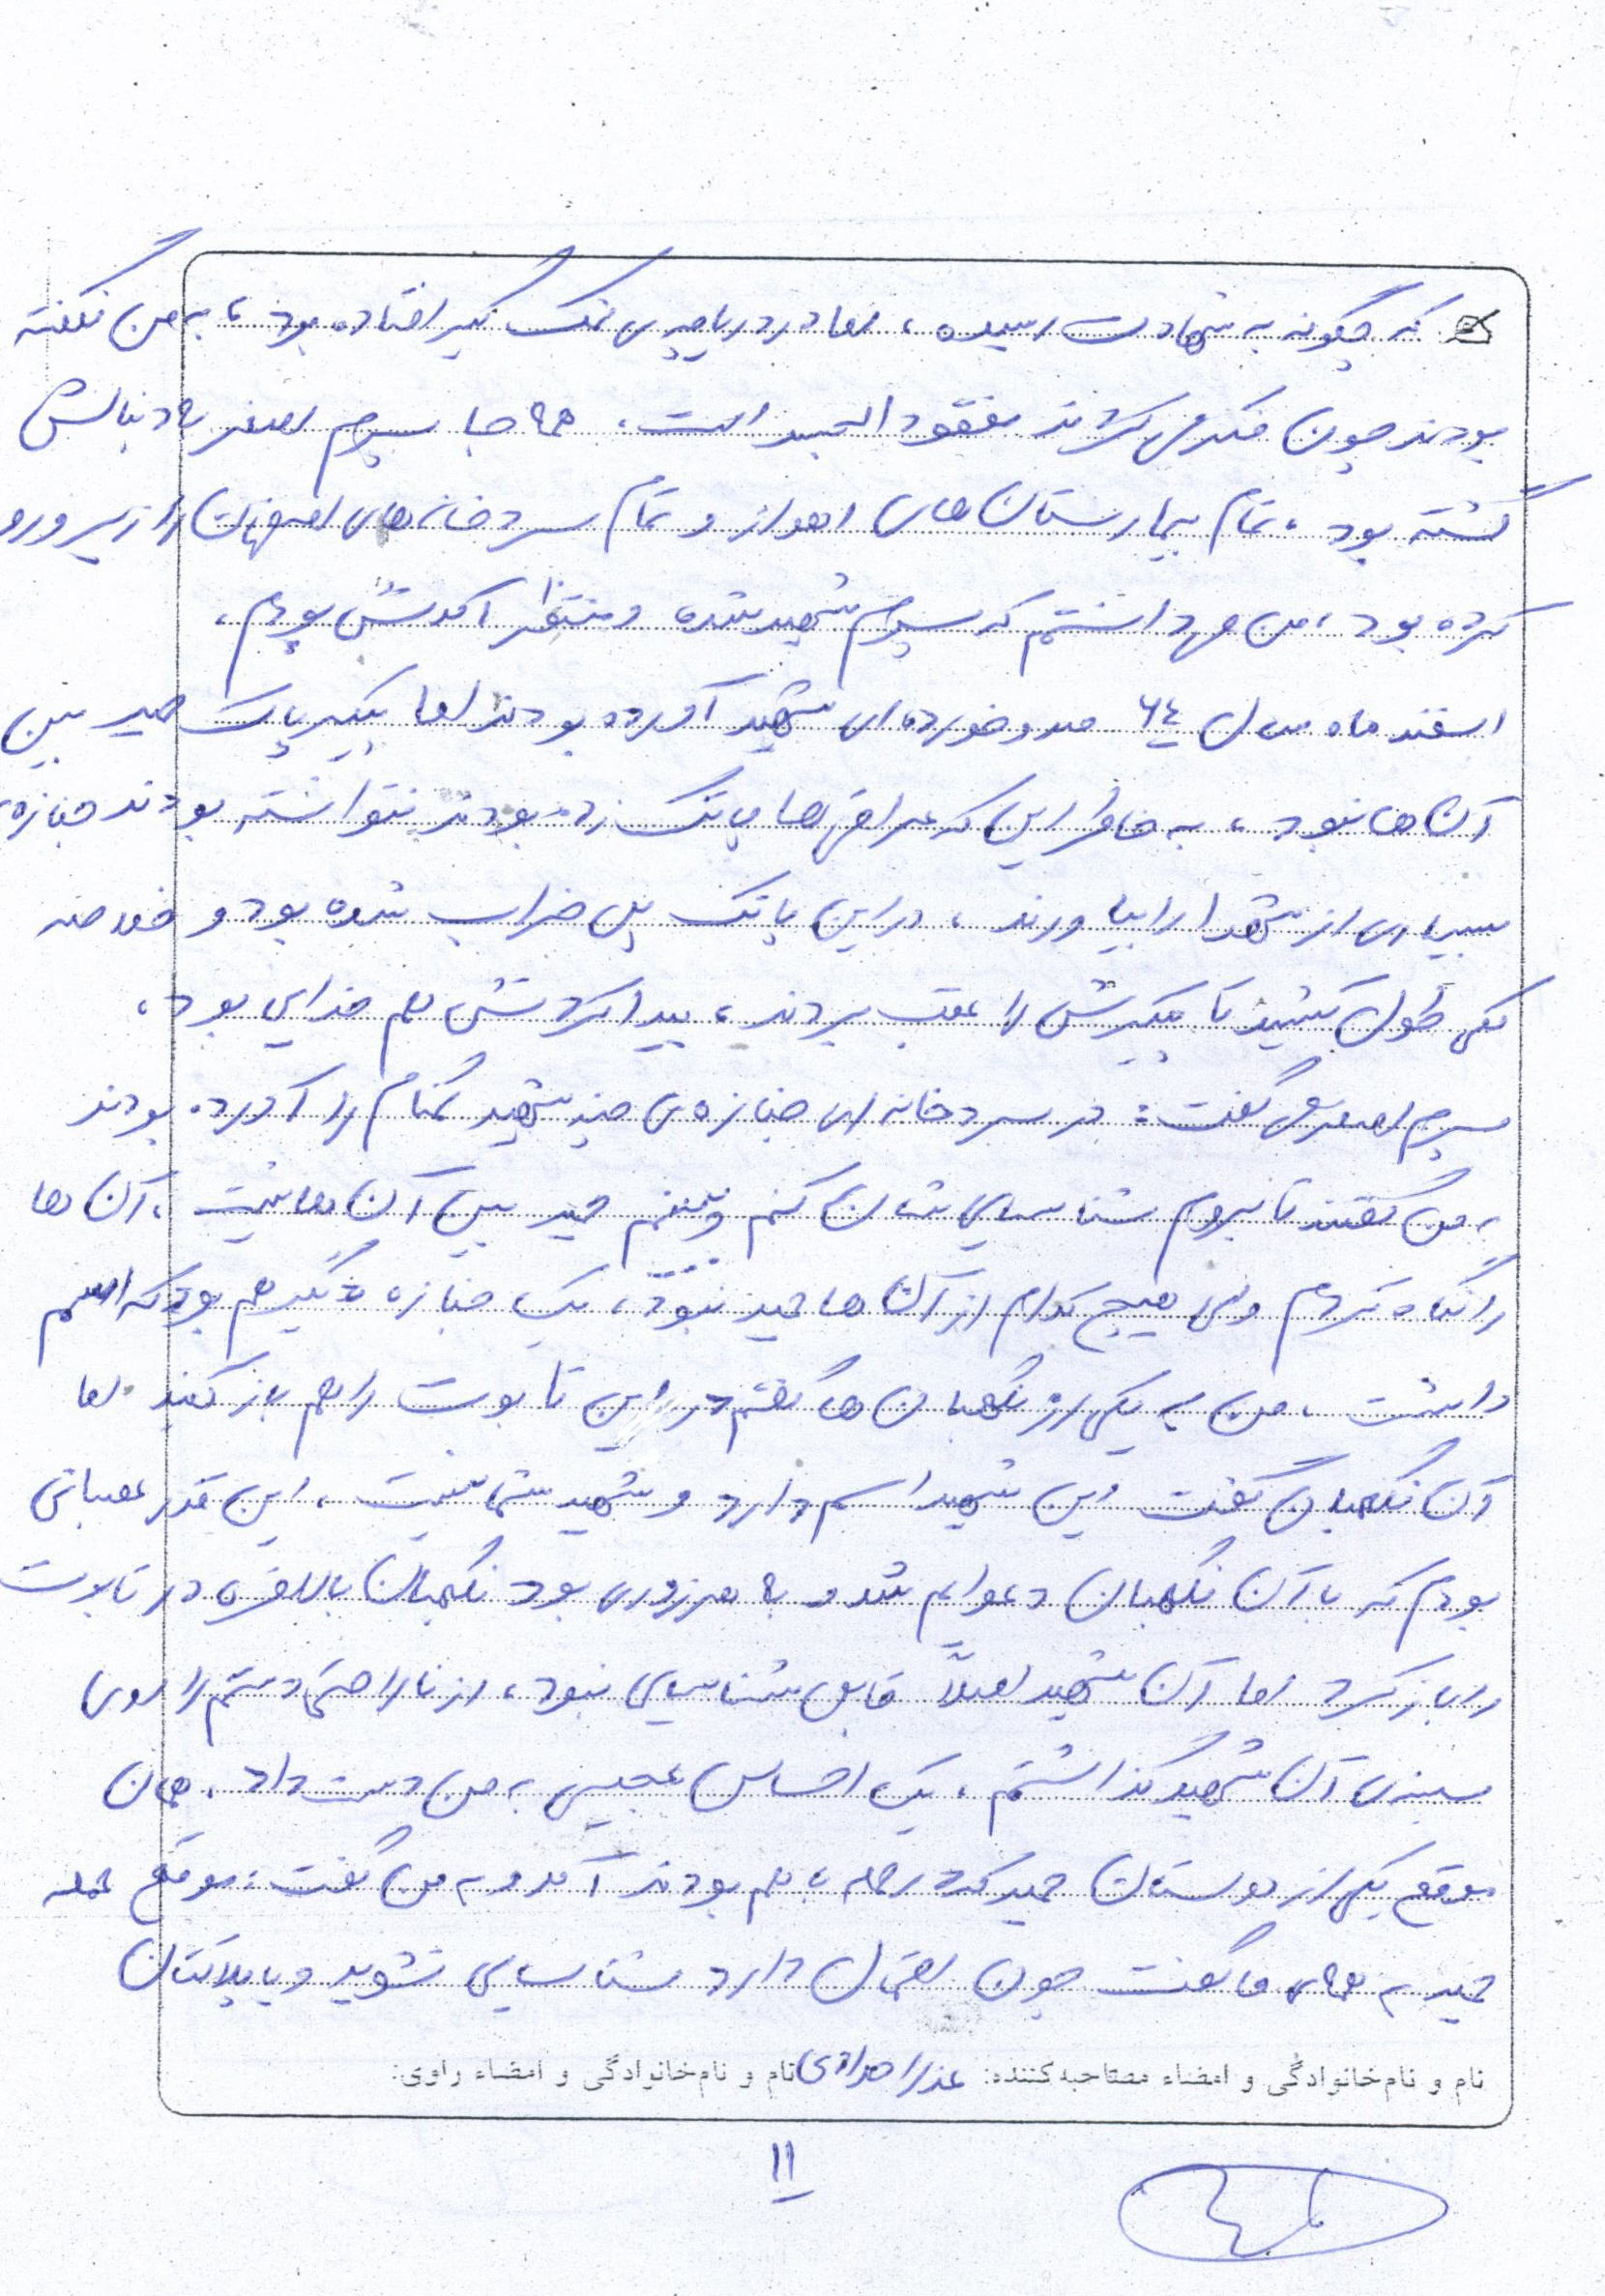 که چگونه به شهادت رسیده، اما در دریاچه‌ی نمک گیر افتاده بود، به من نگفته
بودند چون فکر می‌کردند مفقودالجسد است. همه جا پسرم اصغر به دنبالش
گشته بود، تمام بیمارستان‌های اهواز و تمام سردخانه‌های اصفهان را زیر و رو
کرده بود، من می‌دانستم که پسرم شهید شده و منتظر آمدنش بودم.
اسفند ماه سال ۶۴ صد و خورده‌ای شهید آورده بودند اما پیکر پاک حمید بین
آن‌ها نبود، به خاطر این که عراقی‌ها پاتک زده بودند نتوانسته بودند جنازه‌ی
بسیاری از شهدا را بیاورند، در این پاتک پل خراب شده بود و خلاصه
کمی طول کشید تا پیکرش را عقب بردند، پیدا کردنش هم خدایی بود،
پسرم اصغر می‌گفت: در سردخانه‌ای جنازه‌ی چند شهید گمنام را آورده بودند
به من گفتند تا بروم شناسایی‌شان کنم و ببینم حمید بین آن‌ها نیست، آن‌ها
را نگاه کردم ولی هیچ کدام از آن‌ها حمید نبود، یک جنازه دیگر هم بود که اسم
داشت، من به یکی از نگهبان‌ها گفتم در این تابوت را هم باز کنید اما
آن نگهبان گفت این شهید اسم دارد و شهید شما نیست، این قدر عصبانی
بودم که با آن نگهبان دعوایم شد و به هر زوری بود نگهبان بالاخره در تابوت
را باز کرد اما آن شهید اصلاً قابل شناسایی نبود، از ناراحتی دستم را روی
سینه‌ی آن شهید گذاشتم، یک احساس عجیبی به من دست داد، همان
موقع یکی از دوستان حمید که در حمله با هم بودند آمد و به من گفت: موقع حمله
حمید به همه‌ی ما گفت چون احتمال دارد شناسایی نشوید و یا پلاکتان
نام و نام‌خانوادگی و امضاء مصاحبه‌کننده: عذرا نام و نام‌خانوادگی و امضاء راوی:
۱۱